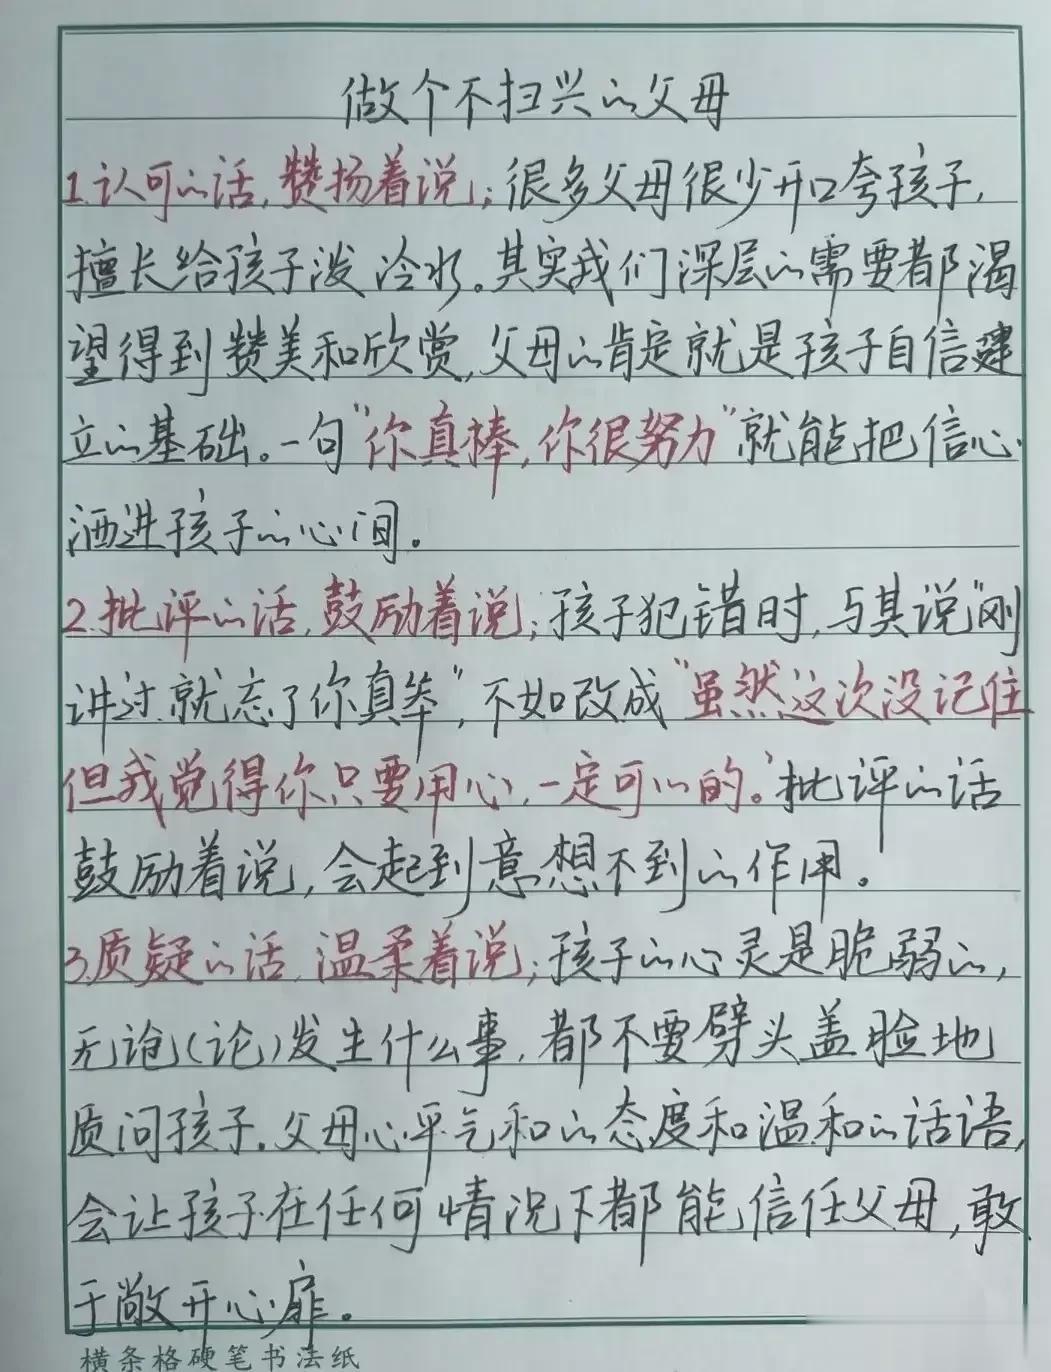 做个不扫兴的父母
1.认可的话,赞扬着说;很多父母很少开口夸孩子,
擅长给孩子泼冷水。其实我们深层的需要都渴
望得到赞美和欣赏,父母的肯定就是孩子自信建
立的基础。一句"你真棒,你很努力"就能把信心
洒进孩子的心间。
2.批评的话,鼓励着说;孩子犯错时,与其说"刚
讲过就忘了你真笨",不如改成"虽然这次没记住
但我觉得你只要用心,一定可以的。"批评的话
鼓励着说,会起到意想不到的作用。
3.质疑的话,温柔着说;孩子的心灵是脆弱的,
无论(论)发生什么事,都不要劈头盖脸地
质问孩子。父母心平气和的态度和温和的话语,
会让孩子在任何情况下都能信任父母,敢
于敞开心扉。
横条格硬笔书法纸